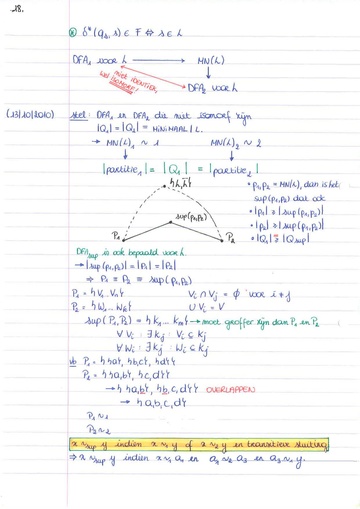 18.
⊛ δ*(q₀, s) ∈ F ⇔ s ∈ L
DFA₁ voor L → MN(L)
niet identiek,
wel isomorf!
DFA₂ voor L
(13/10/2010) stel: DFA₁ en DFA₂ die niet isomorf zijn
|Q₁| = |Q₂| = MINIMAAL | L.
→ MN(L)₁ ~ 1 MN(L)₂ ~ 2
|partitie₁| = |Q₁| = |partitie₂|
{L, L̄}
sup(P₁,P₂)
P₁ P₂
• P₁,P₂ = MN(L), dan is het
sup(P₁,P₂) dat ook
• |P₁| ≥ |sup(P₁,P₂)|
• |P₂| ≥ |sup(P₁,P₂)|
• |Q₁| ≥ |Qsup|
DFAsup is ook bepaald voor L.
→ |sup(P₁,P₂)| = |P₁| = |P₂|
⇒ P₁ = P₂ = sup(P₁,P₂)
P₁ = {V₁...Vₙ} Vᵢ ∩ Vⱼ = ∅ voor i ≠ j
P₂ = {W₁...Wₙ} ∪ Vᵢ = V
sup(P₁,P₂) = {K₁ ... Kₘ} → moet groffer zijn dan P₁ en P₂
∀ Vᵢ : ∃ Kⱼ : Vᵢ ⊆ Kⱼ
∀ Wᵢ : ∃ Kⱼ : Wᵢ ⊆ Kⱼ
vb P₁ = {{a}, {b,c}, {d}}
P₂ = {{a,b}, {c,d}}
→ {{a,b}, {b,c,d}} OVERLAPPEN
→ {a,b,c,d}
P₁ ~₁
P₂ ~₂
x ~sup y indien x ~₁ y of x ~₂ y en transitieve sluiting
⇒ x ~sup y indien x ~₁ a₁ en a₁ ~₂ a₃ en a₃ ~₁ y.